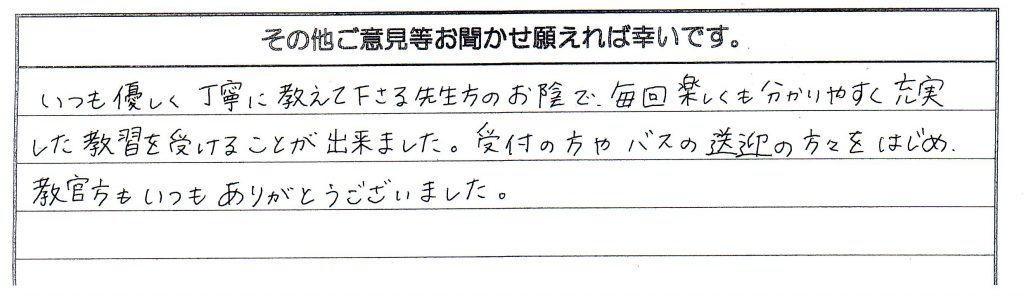 その他ご意見等お聞かせ願えれば幸いです。
いつも優しく丁寧に教えて下さる先生方のお陰で、毎回楽しくも分かりやすく充実
した教習を受けることが出来ました。受付の方やバスの送迎の方々をはじめ、
教官方もいつもありがとうございました。